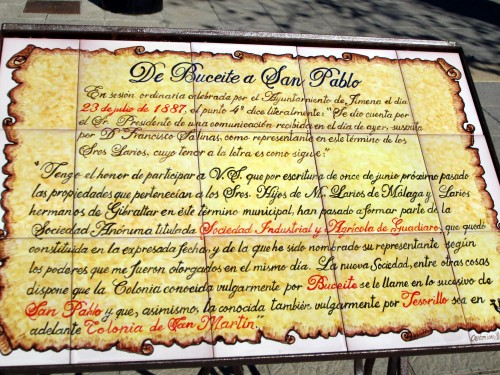 De Buceite a San Pablo
En sesión ordinaria celebrada por el Ayuntamiento de Jimena el día
23 de julio de 1887, el punto 4º dice literalmente: "Se dio cuenta por
el Sr. Presidente de una comunicación recibida en el día de ayer, suscrita
por Dº Francisco Salinas, como representante en este término de los
Sres Larios, cuyo tenor a la letra es como sigue:
"Tengo el honor de participar a V.S. que por escritura de once de junio próximo pasado
las propiedades que pertenecían a los Sres. Hijos de M. Larios de Málaga y Larios
hermanos de Gibraltar en este término municipal, han pasado a formar parte de la
Sociedad Anónima titulada Sociedad Industrial y Agrícola de Guadiaro, que quedó
constituida en la expresada fecha, y de la que he sido nombrado su representante según
los poderes que me fueron otorgados en el mismo día. La nueva Sociedad, entre otras cosas
dispone que la Colonia conocida vulgarmente por Buceite se le llame en lo sucesivo de
San Pablo y que, asimismo, la conocida también vulgarmente por Tesorillo sea en
adelante Colonia de San Martín."